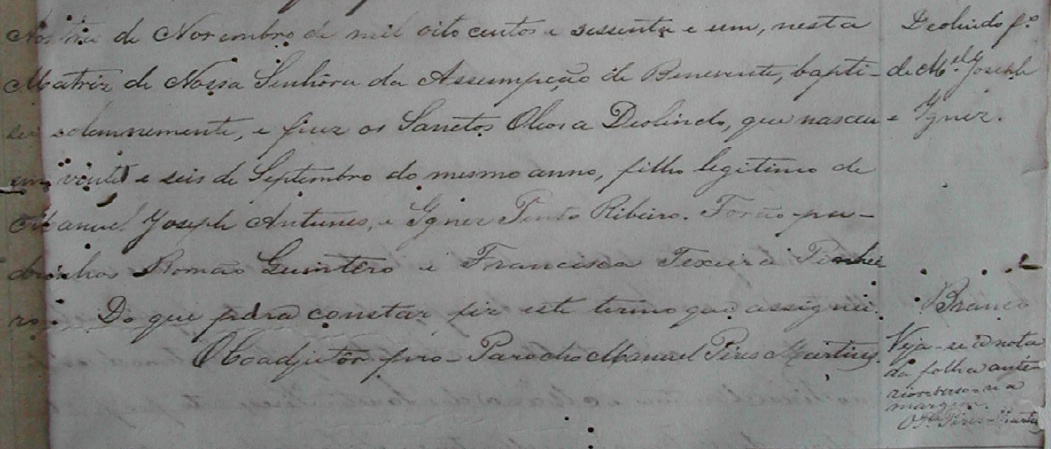 Aos tres de Novembro de mil oito centos e sessenta e um, nesta
Matriz de Nossa Senhôra da Assumpção de Benevente, bapti-
sei solemnemente, e puz os Sanctos Oleos a Deolindo, que nasceu
em vinte e seis de Septembro do mesmo anno, filho legitimo de
Manuel Joseph Antunes, e Ignez Pinto Ribeiro. Forão pa-
drinhos Romão Quintéro e Francisca Texeira Pinhei
ro. Do que pára constar fiz este termo que assignei.
O Coadjutôr pro-Parocho Manuel Pires Martins.
Deolindo fº
de Mel Joseph
e Ignez.
Branco
Veja-se a nota
da folha ante-
rior verso na
margem.
Pires Martins